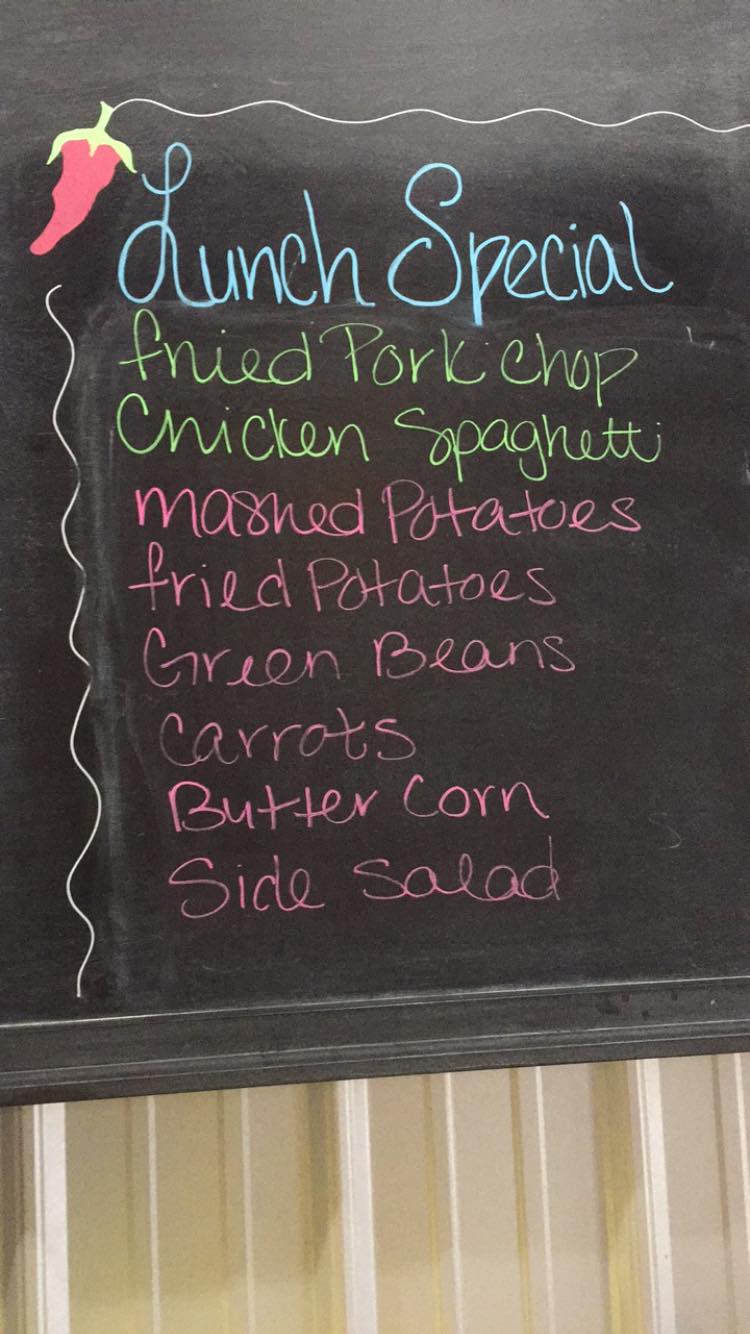 Lunch Special
fried Pork Chop
Chicken Spaghetti
mashed Potatoes
fried Potatoes
Green Beans
Carrots
Butter Corn
Side Salad